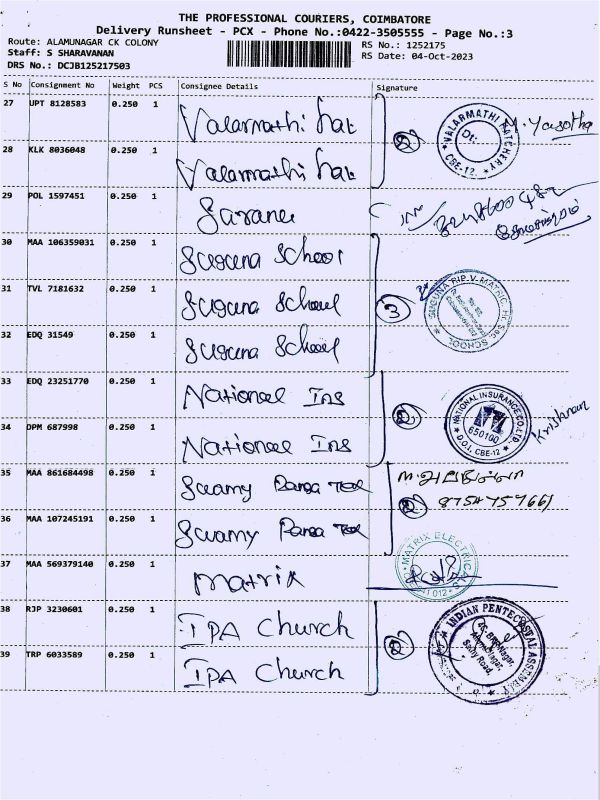 THE PROFESSIONAL COURIERS, COIMBATORE
Delivery Runsheet - PCX - Phone No.:0422-3505555 - Page No.:3
Route: ALAMUNAGAR CK COLONY
Staff: S SHARAVANAN
DRS No.: DCJB125217503
RS No.: 1252175
RS Date: 04-Oct-2023
S No Consignment No Weight PCS Consignee Details Signature
27 UPT 8128583 0.250 1 Valarmathi hat
28 KLK 8036048 0.250 1 Valarmathi hat
2
VALARMATHI HATCHERY
Dt:
CBE-12
M. Yasotha
29 POL 1597451 0.250 1
30 MAA 106359031 0.250 1 Suguna School
31 TVL 7181632 0.250 1 Suguna School
32 EDQ 31549 0.250 1 Suguna School
3
SUGUNA RIP.V.MATRIC. Hr Sec SCHOOL
33 EDQ 23251770 0.250 1 National Ins
34 DPM 687998 0.250 1 National Ins
2
NATIONAL INSURANCE CO. LTD.
650100
D.O.I, CBE-12
Krishnan
35 MAA 861684498 0.250 1 Swamy
36 MAA 107245191 0.250 1 Swamy
2
8754757661
37 MAA 569379140 0.250 1 Matrix
MATRIX ELECTRICALS
38 RJP 3230601 0.250 1 IPA Church
39 TRP 6033589 0.250 1 IPA Church
2
INDIAN PENTECOSTAL ASSEMBLY